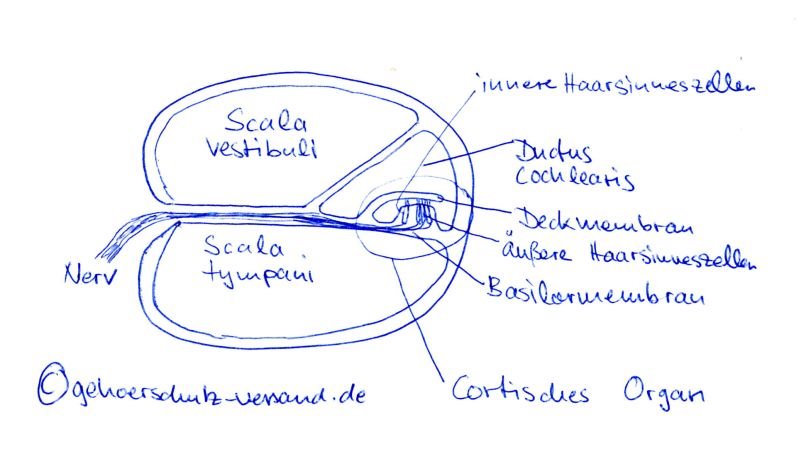 innere Haarsinneszellen
Scala
vestibuli
Ductus
Cochlearis
Deckmembran
äußere Haarsinneszellen
Scala
tympani
Nerv
Basilarmembran
©gehoerschutz-versand.de
Cortisches Organ